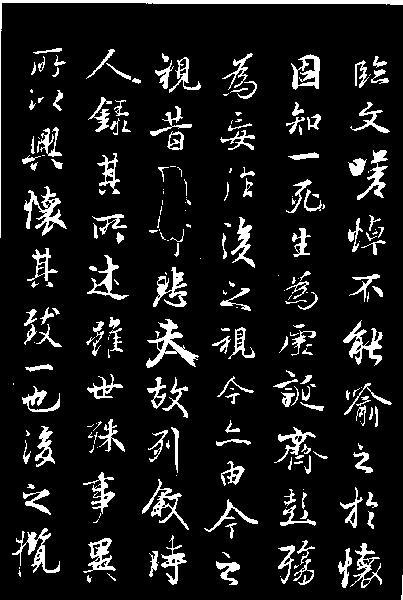 臨文嗟悼不能喻之於懷
固知一死生為虛誕齊彭殤
為妄作後之視今亦由今之
視昔悲夫故列敘時
人錄其所述雖世殊事異
所以興懷其致一也後之攬